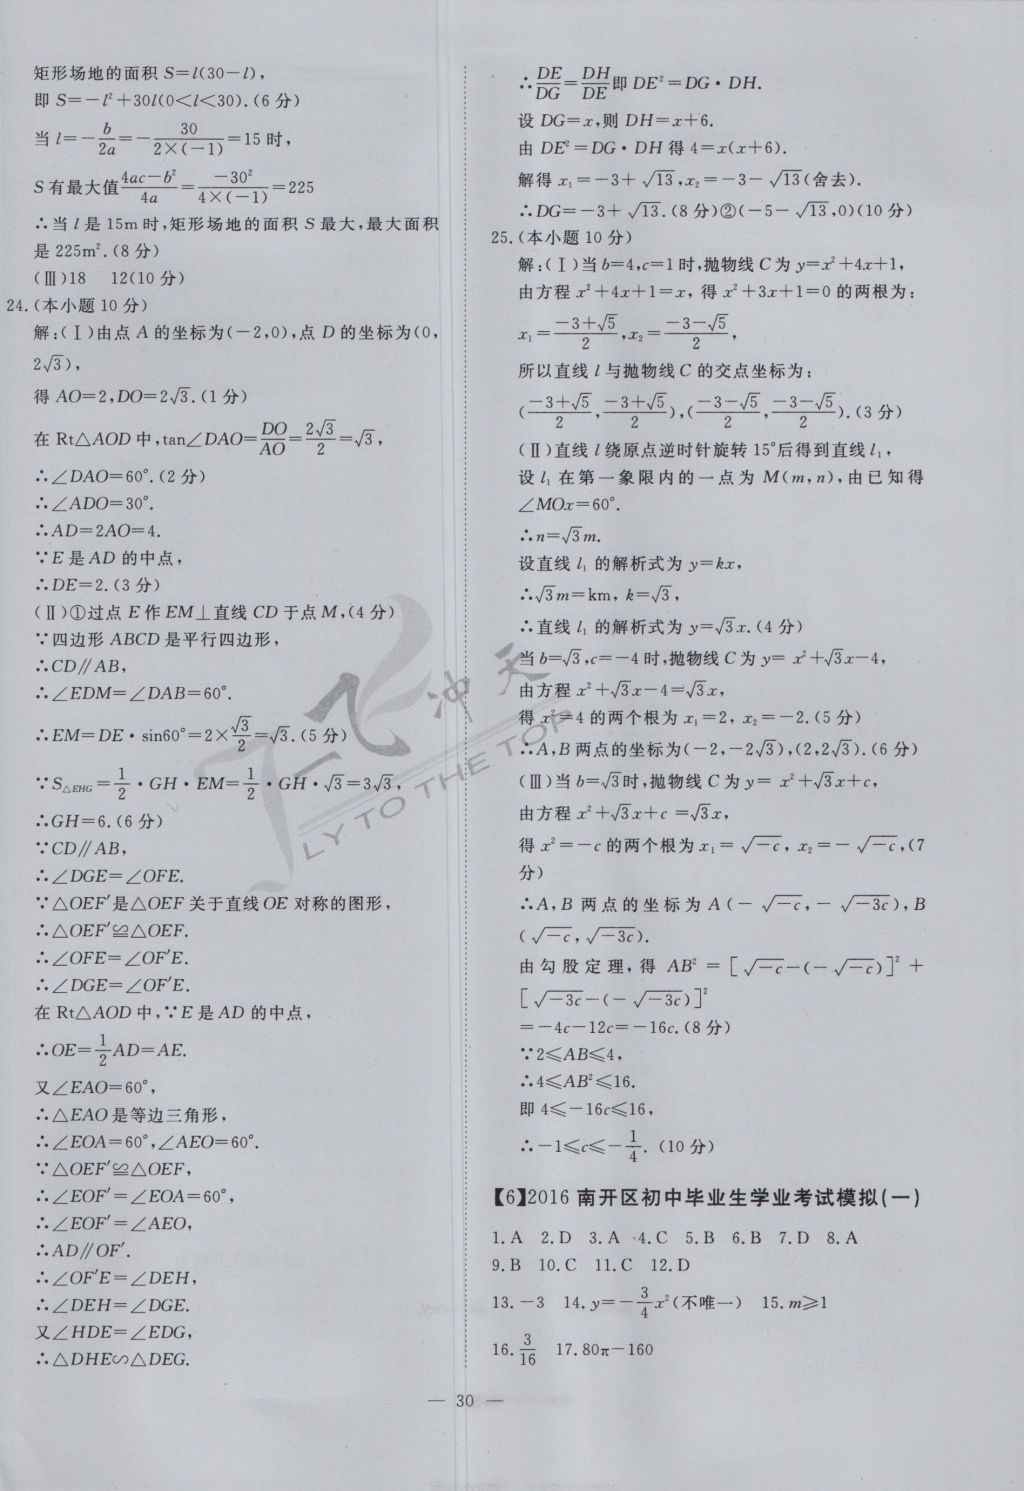 矩形场地的面积 S=l(30-l),
即 S=-l²+30l(0<l<30).(6分)
当 l=-b/2a=-30/2×(-1)=15时,
S有最大值4ac-b²/4a=-30²/4×(-1)=225
∴当 l 是 15m时,矩形场地的面积 S 最大,最大面积
是 225m².(8分)
(Ⅲ)18 12(10分)
24.(本小题 10 分)
解:(Ⅰ)由点 A 的坐标为(-2,0),点 D 的坐标为(0,
2√3),
得 AO=2,DO=2√3.(1分)
在 Rt△AOD 中,tan∠DAO=DO/AO=2√3/2=√3,
∴∠DAO=60°.(2分)
∴∠ADO=30°.
∴AD=2AO=4.
∵E 是 AD 的中点,
∴DE=2.(3分)
(Ⅱ)①过点 E 作 EM⊥直线 CD 于点 M,(4分)
∵四边形 ABCD 是平行四边形,
∴CD∥AB,
∴∠EDM=∠DAB=60°.
∴EM=DE·sin60°=2×√3/2=√3.(5分)
∵S△EHG=1/2·GH·EM=1/2·GH·√3=3√3,
∴GH=6.(6分)
∵CD∥AB,
∴∠DGE=∠OFE.
∵△OEF′是△OEF 关于直线 OE 对称的图形,
∴△OEF′≌△OEF.
∴∠OFE=∠OF′E.
∴∠DGE=∠OF′E.
在 Rt△AOD 中,∵E 是 AD 的中点,
∴OE=1/2AD=AE.
又∠EAO=60°,
∴△EAO 是等边三角形,
∴∠EOA=60°,∠AEO=60°.
∵△OEF′≌△OEF,
∴∠EOF′=∠EOA=60°,
∴∠EOF′=∠AEO,
∴AD∥OF′.
∴∠OF′E=∠DEH,
∴∠DEH=∠DGE.
又∠HDE=∠EDG,
∴△DHE∽△DEG.
∴DE/DG=DH/DE即 DE²=DG·DH.
设 DG=x,则 DH=x+6.
由 DE²=DG·DH 得 4=x(x+6).
解得 x₁=-3+√13,x₂=-3-√13(舍去).
∴DG=-3+√13.(8分)②(-5-√13,0)(10分)
25.(本小题 10 分)
解:(Ⅰ)当 b=4,c=1 时,抛物线 C 为 y=x²+4x+1,
由方程 x²+4x+1=x, 得 x²+3x+1=0 的两根为:
x₁=-3+√5/2,x₂=-3-√5/2,
所以直线 l 与抛物线 C 的交点坐标为:
(-3+√5/2,-3+√5/2),(-3-√5/2,-3-√5/2).(3分)
(Ⅱ)直线 l 绕原点逆时针旋转 15°后得到直线 l₁,
设 l₁ 在第一象限内的一点为 M(m,n),由已知得
∠MOx=60°.
∴n=√3m.
设直线 l₁ 的解析式为 y=kx,
∴√3m=km, k=√3,
∴直线 l₁ 的解析式为 y=√3x.(4分)
当 b=√3,c=-4 时,抛物线 C 为 y= x²+√3x-4,
由方程 x²+√3x-4=√3x,
得 x²=4 的两个根为 x₁=2, x₂=-2.(5分)
∴A,B 两点的坐标为(-2,-2√3),(2,2√3).(6分)
(Ⅲ)当 b=√3时,抛物线 C 为 y= x²+√3x+c,
由方程 x²+√3x+c =√3x,
得 x²=-c 的两个根为 x₁= √-c, x₂=-√-c,(7
分)
∴A,B 两点的坐标为 A(-√-c,-√-3c),B
(√-c,√-3c).
由勾股定理,得 AB²=[√-c-(-√-c)]²+
[√-3c-(-√-3c)]²
=-4c-12c=-16c.(8分)
∵2≤AB≤4,
∴4≤AB²≤16.
即 4≤-16c≤16,
∴-1≤c≤-1/4. (10分)
【6】2016 南开区初中毕业生学业考试模拟(一)
1.A 2.D 3.A 4.C 5.B 6.B 7.D 8.A
9.B 10.C 11.C 12.D
13.-3 14.y=-3/4x²(不唯一) 15.m≥1
16.3/16 17.80π-160
— 30 —
一飞冲天
FLY TO THE TOP